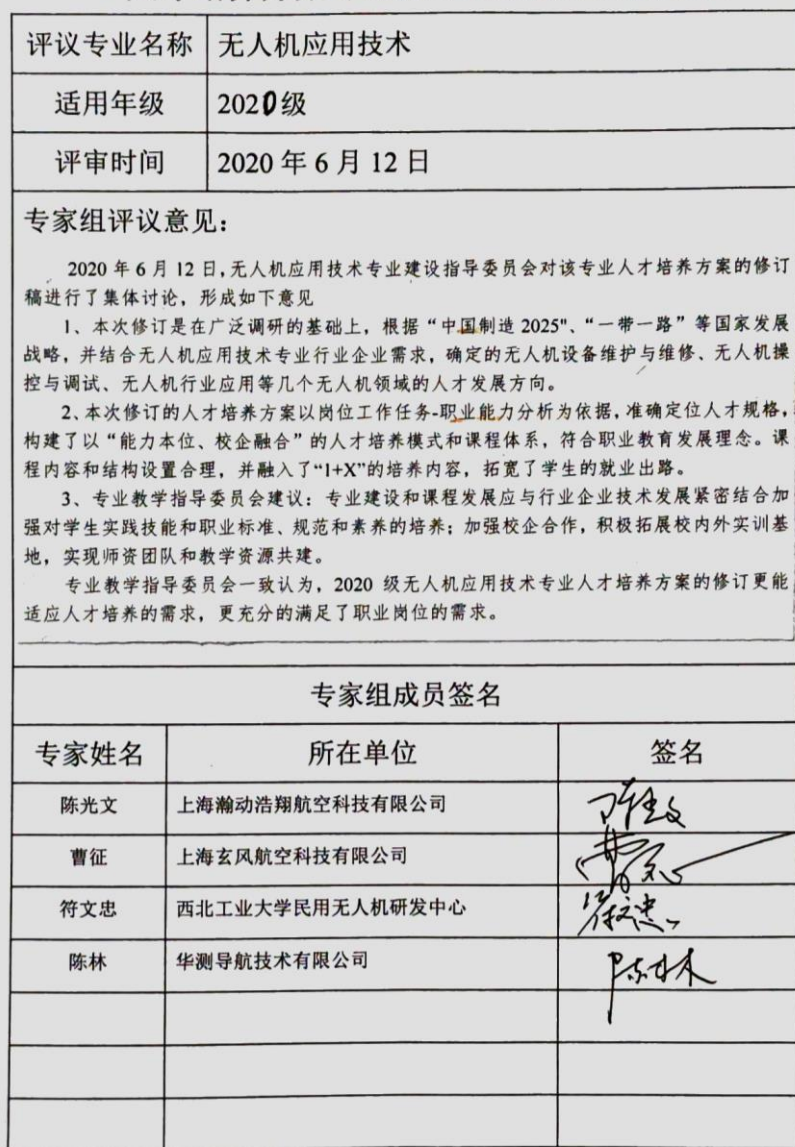 评议专业名称 无人机应用技术
适用年级 2020级
评审时间 2020 年 6 月 12 日
专家组评议意见：
2020 年 6 月 12 日,无人机应用技术专业建设指导委员会对该专业人才培养方案的修订
稿进行了集体讨论，形成如下意见
1、本次修订是在广泛调研的基础上，根据“中国制造 2025"、“一带一路”等国家发展
战略，并结合无人机应用技术专业行业企业需求，确定的无人机设备维护与维修、无人机操
控与调试、无人机行业应用等几个无人机领域的人才发展方向。
2、本次修订的人才培养方案以岗位工作任务-职业能力分析为依据，准确定位人才规格，
构建了以“能力本位、校企融合”的人才培养模式和课程体系，符合职业教育发展理念。课
程内容和结构设置合理，并融入了“1+X”的培养内容，拓宽了学生的就业出路。
3、专业教学指导委员会建议：专业建设和课程发展应与行业企业技术发展紧密结合加
强对学生实践技能和职业标准、规范和素养的培养；加强校企合作，积极拓展校内外实训基
地，实现师资团队和教学资源共建。
专业教学指导委员会一致认为，2020 级无人机应用技术专业人才培养方案的修订更能
适应人才培养的需求，更充分的满足了职业岗位的需求。
专家组成员签名
专家姓名 所在单位 签名
陈光文 上海瀚动浩翔航空科技有限公司
曹征 上海玄风航空科技有限公司
符文忠 西北工业大学民用无人机研发中心 符文忠
陈林 华测导航技术有限公司 陈林